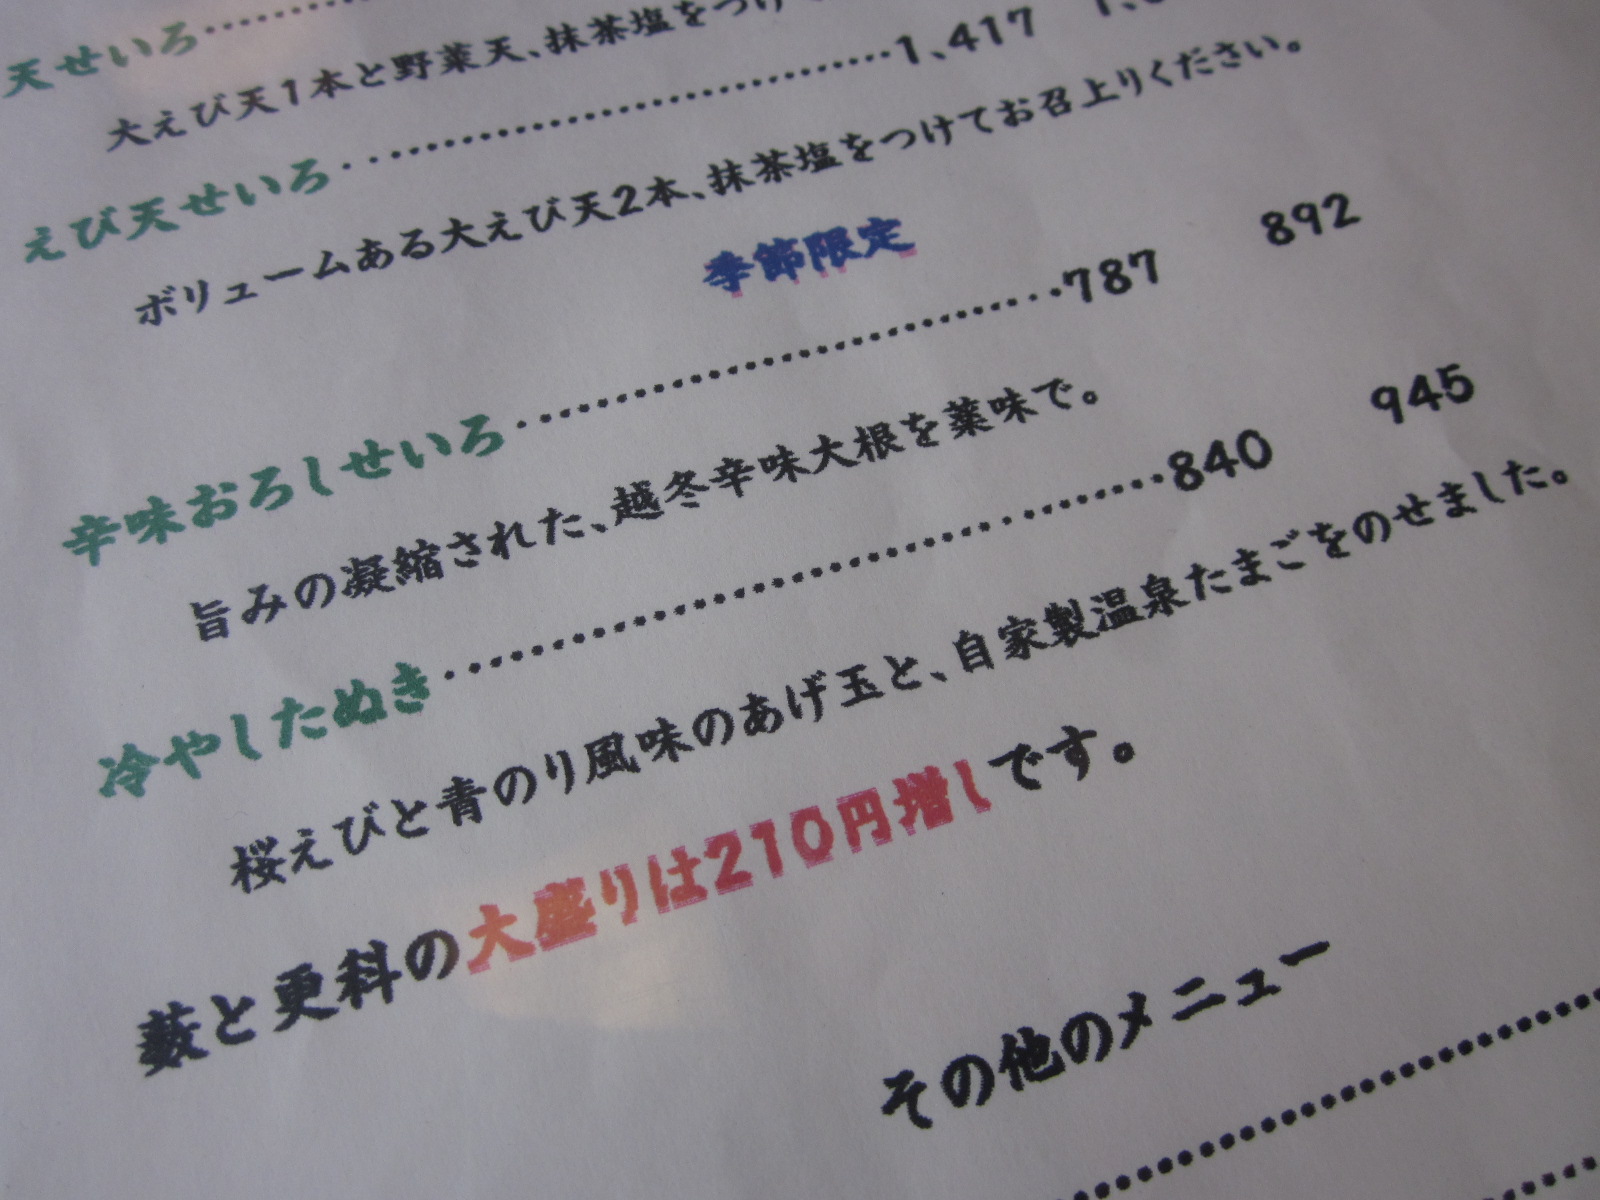 天せいろ
大えび天1本と野菜天、抹茶塩をつけ
えび天せいろ・・・・・・・・・・・・・・・・・・・・・・・・1,417
ボリュームある大えび天2本、抹茶塩をつけてお召上りください。
季節限定
辛味おろしせいろ・・・・・・・・・・・・・・・・・・・・・・・・787 892
旨みの凝縮された、越冬辛味大根を薬味で。
冷やしたぬき・・・・・・・・・・・・・・・・・・・・・・・・840 945
桜えびと青のり風味のあげ玉と、自家製温泉たまごをのせました。
薮と更科の大盛りは210円増しです。
その他のメニュー